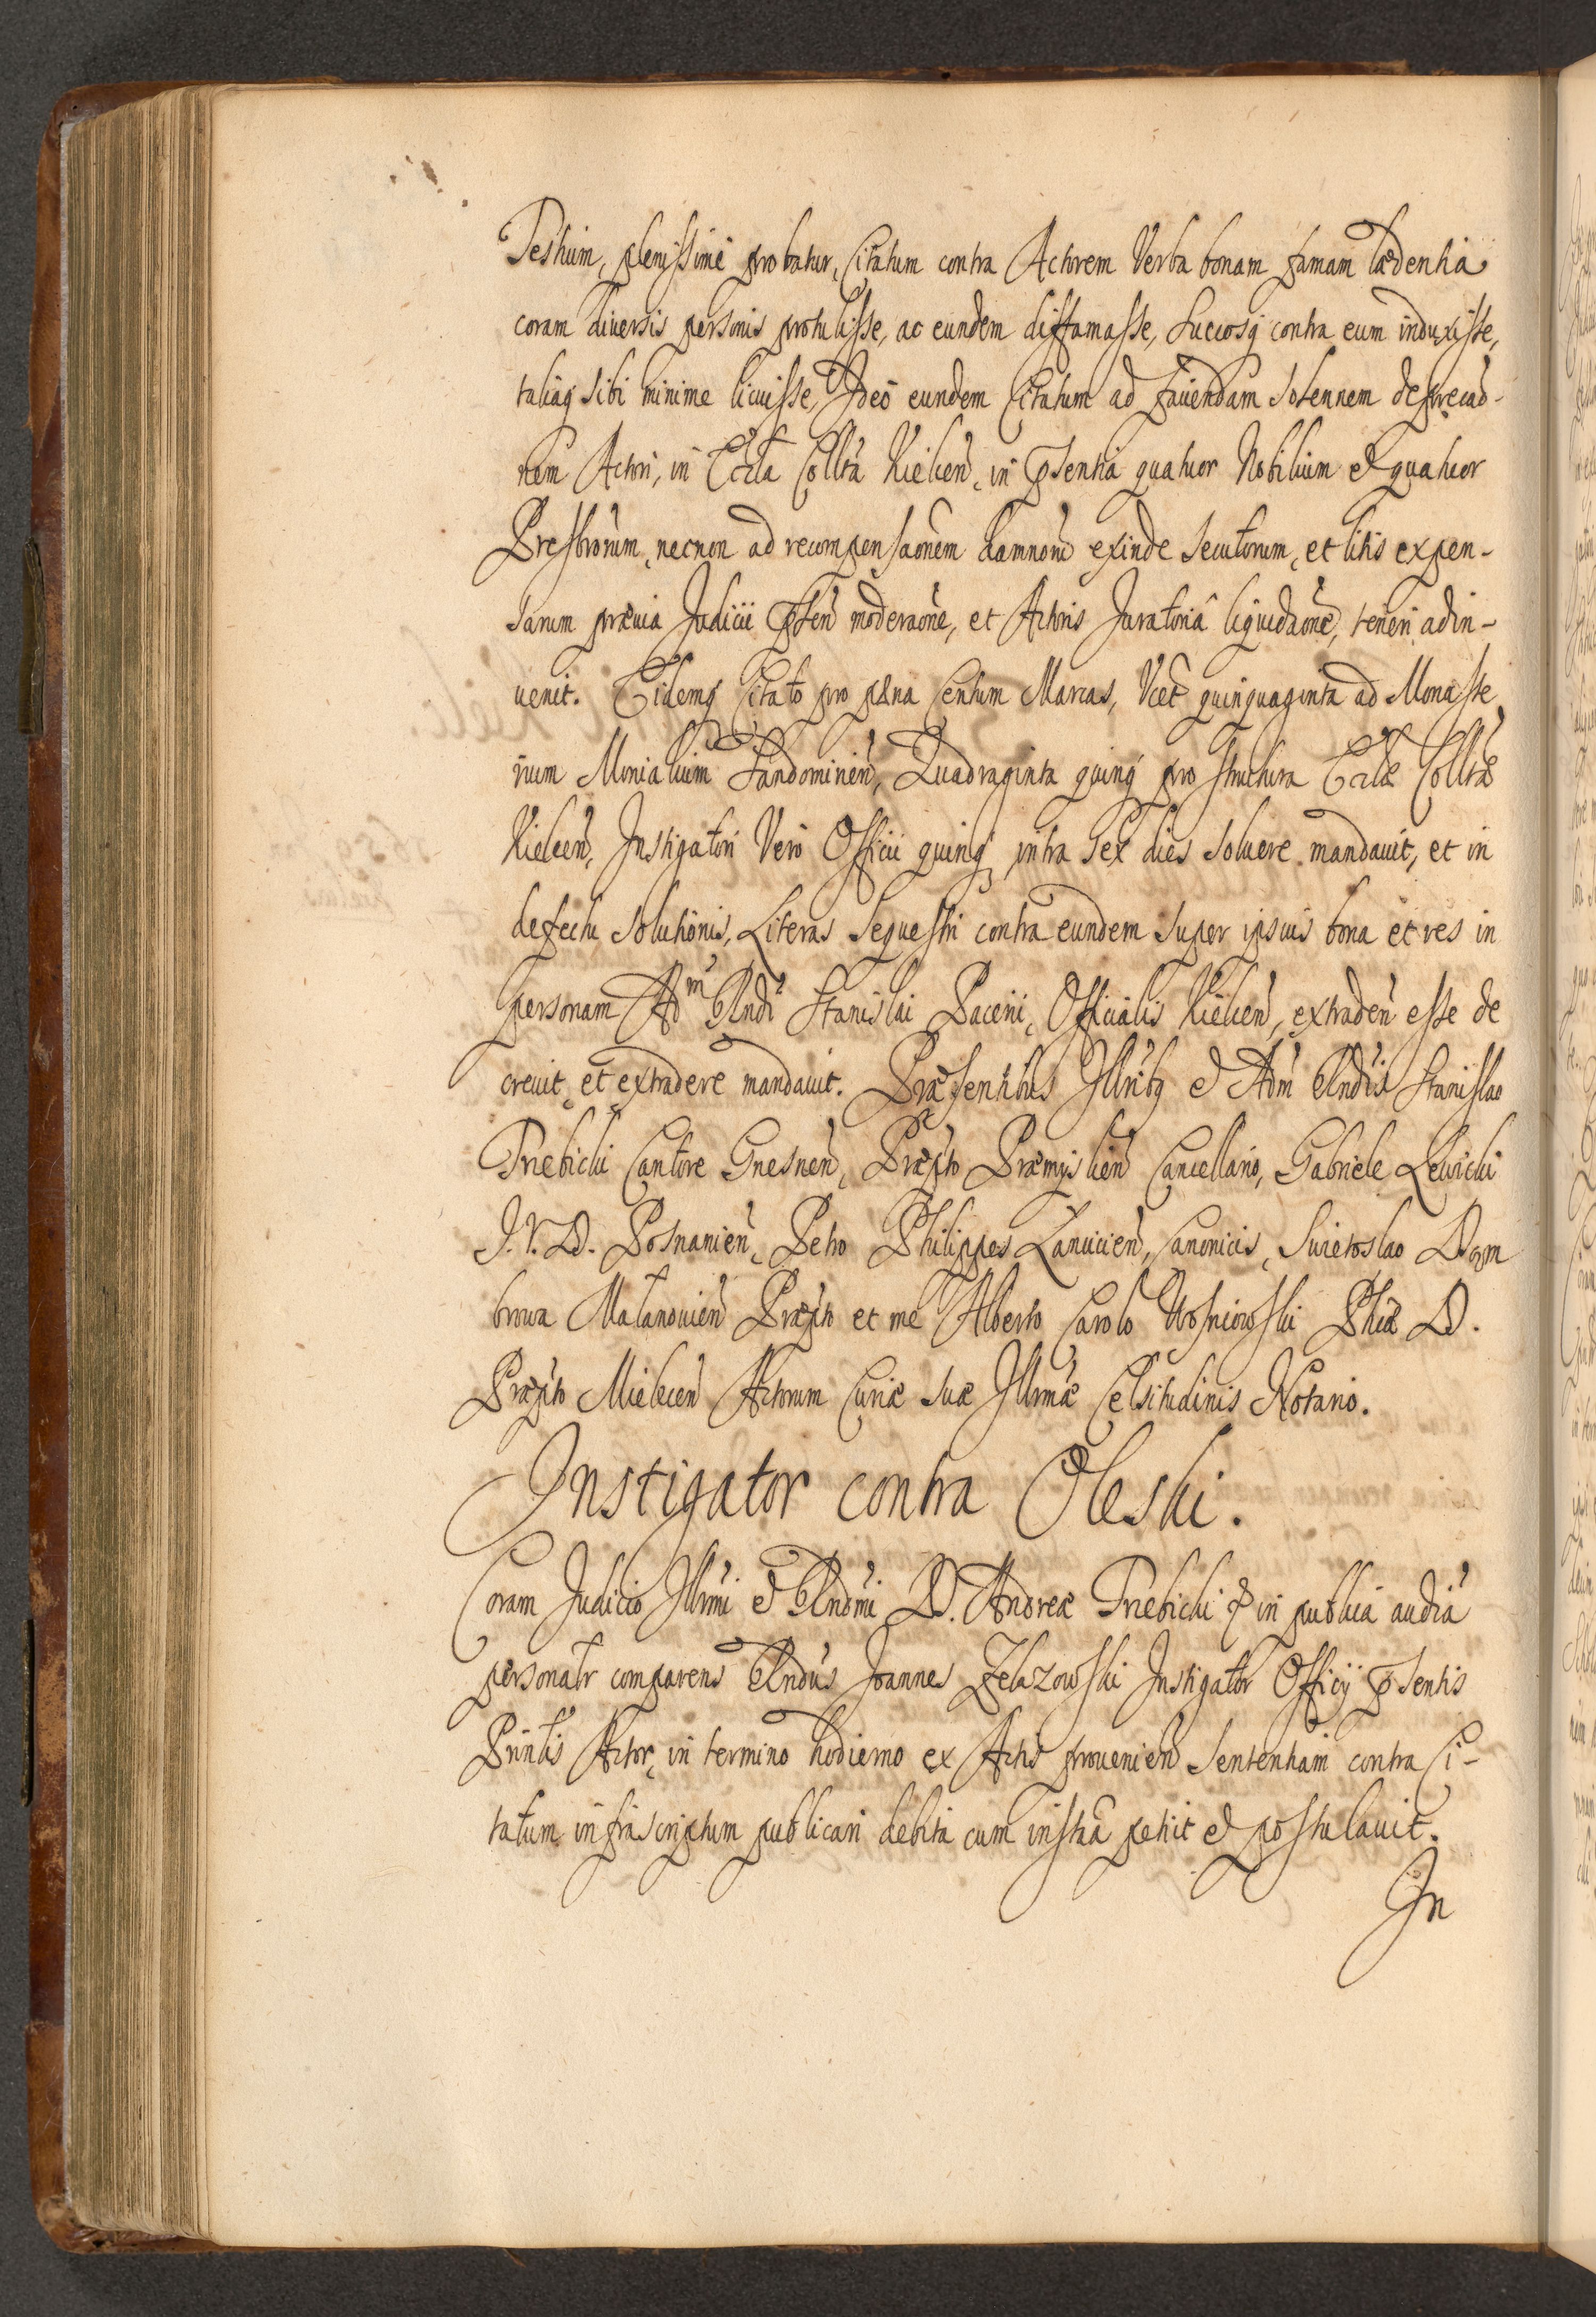 Testium, plenissime probatur, Citatum contra Actorem Verba bonam famam lædentia
coram diuersis personis protulisse, ac eundem diffamasse, Succosq contra eum induxisse,
taliaq sibi minime licuisse, Ideo eundem Citatum ad fauendam Solennem deprecao-
nem Actori, in Eccla Collta Kielcen, in pñsentia quatuor Nobilium et quatuor
Presbrorum, necnon ad recompensaonem damnorũ exinde secutorum, et litis expen-
sarum præuia Judicii pñsen moderaone, et Actoris Juratoria liquidaone, teneri adin-
uenit. Eidemq Citato pro pæna Centum Marcas, Vcet quinquaginta ad Monaste
rium Monialium Sandomirien, Quadraginta quinq pro structura Ecclæ Colltæ
Kielcen, Instigatori Vero Officii quinq intra Sex dies soluere mandauit, et in
defectu solutionis, Literas Sequestri contra eundem super ipsius bona et res in
personam Adm Rndi Stanislai Pacerii, Officialis Kielcen, extraden esse de
creuit, et extradere mandauit. Præsentibus Illribq et Adm Rndis Stanislao
Trebicki Cantore Gnesnen, Præpto Præmyslien Cancellario, Gabriele Lewicki
J. V. D. Posnanien, Petro Philippes Lanicien, Canonicis, Swietoslao Dom
browa Malanouien Præpto et me Alberto Carolo Wosniowski Phiæ D.
Præpto Mielecen Actorum Curiæ suæ Illrmæ Celsitudinis Notario.
Instigator contra Oleski.
Coram Judicio Illrmi et Rndmi D. Andreæ Trebicki & in publica audia
personalr comparens Rndus Joannes Zelazowski Instigator Officij pñsentis
Prinlis Actor, in termino hodierno ex Actis prouenien Sententiam contra Ci-
tatum infrascriptum publicari debita cum instaa petiit et postulauit.
In